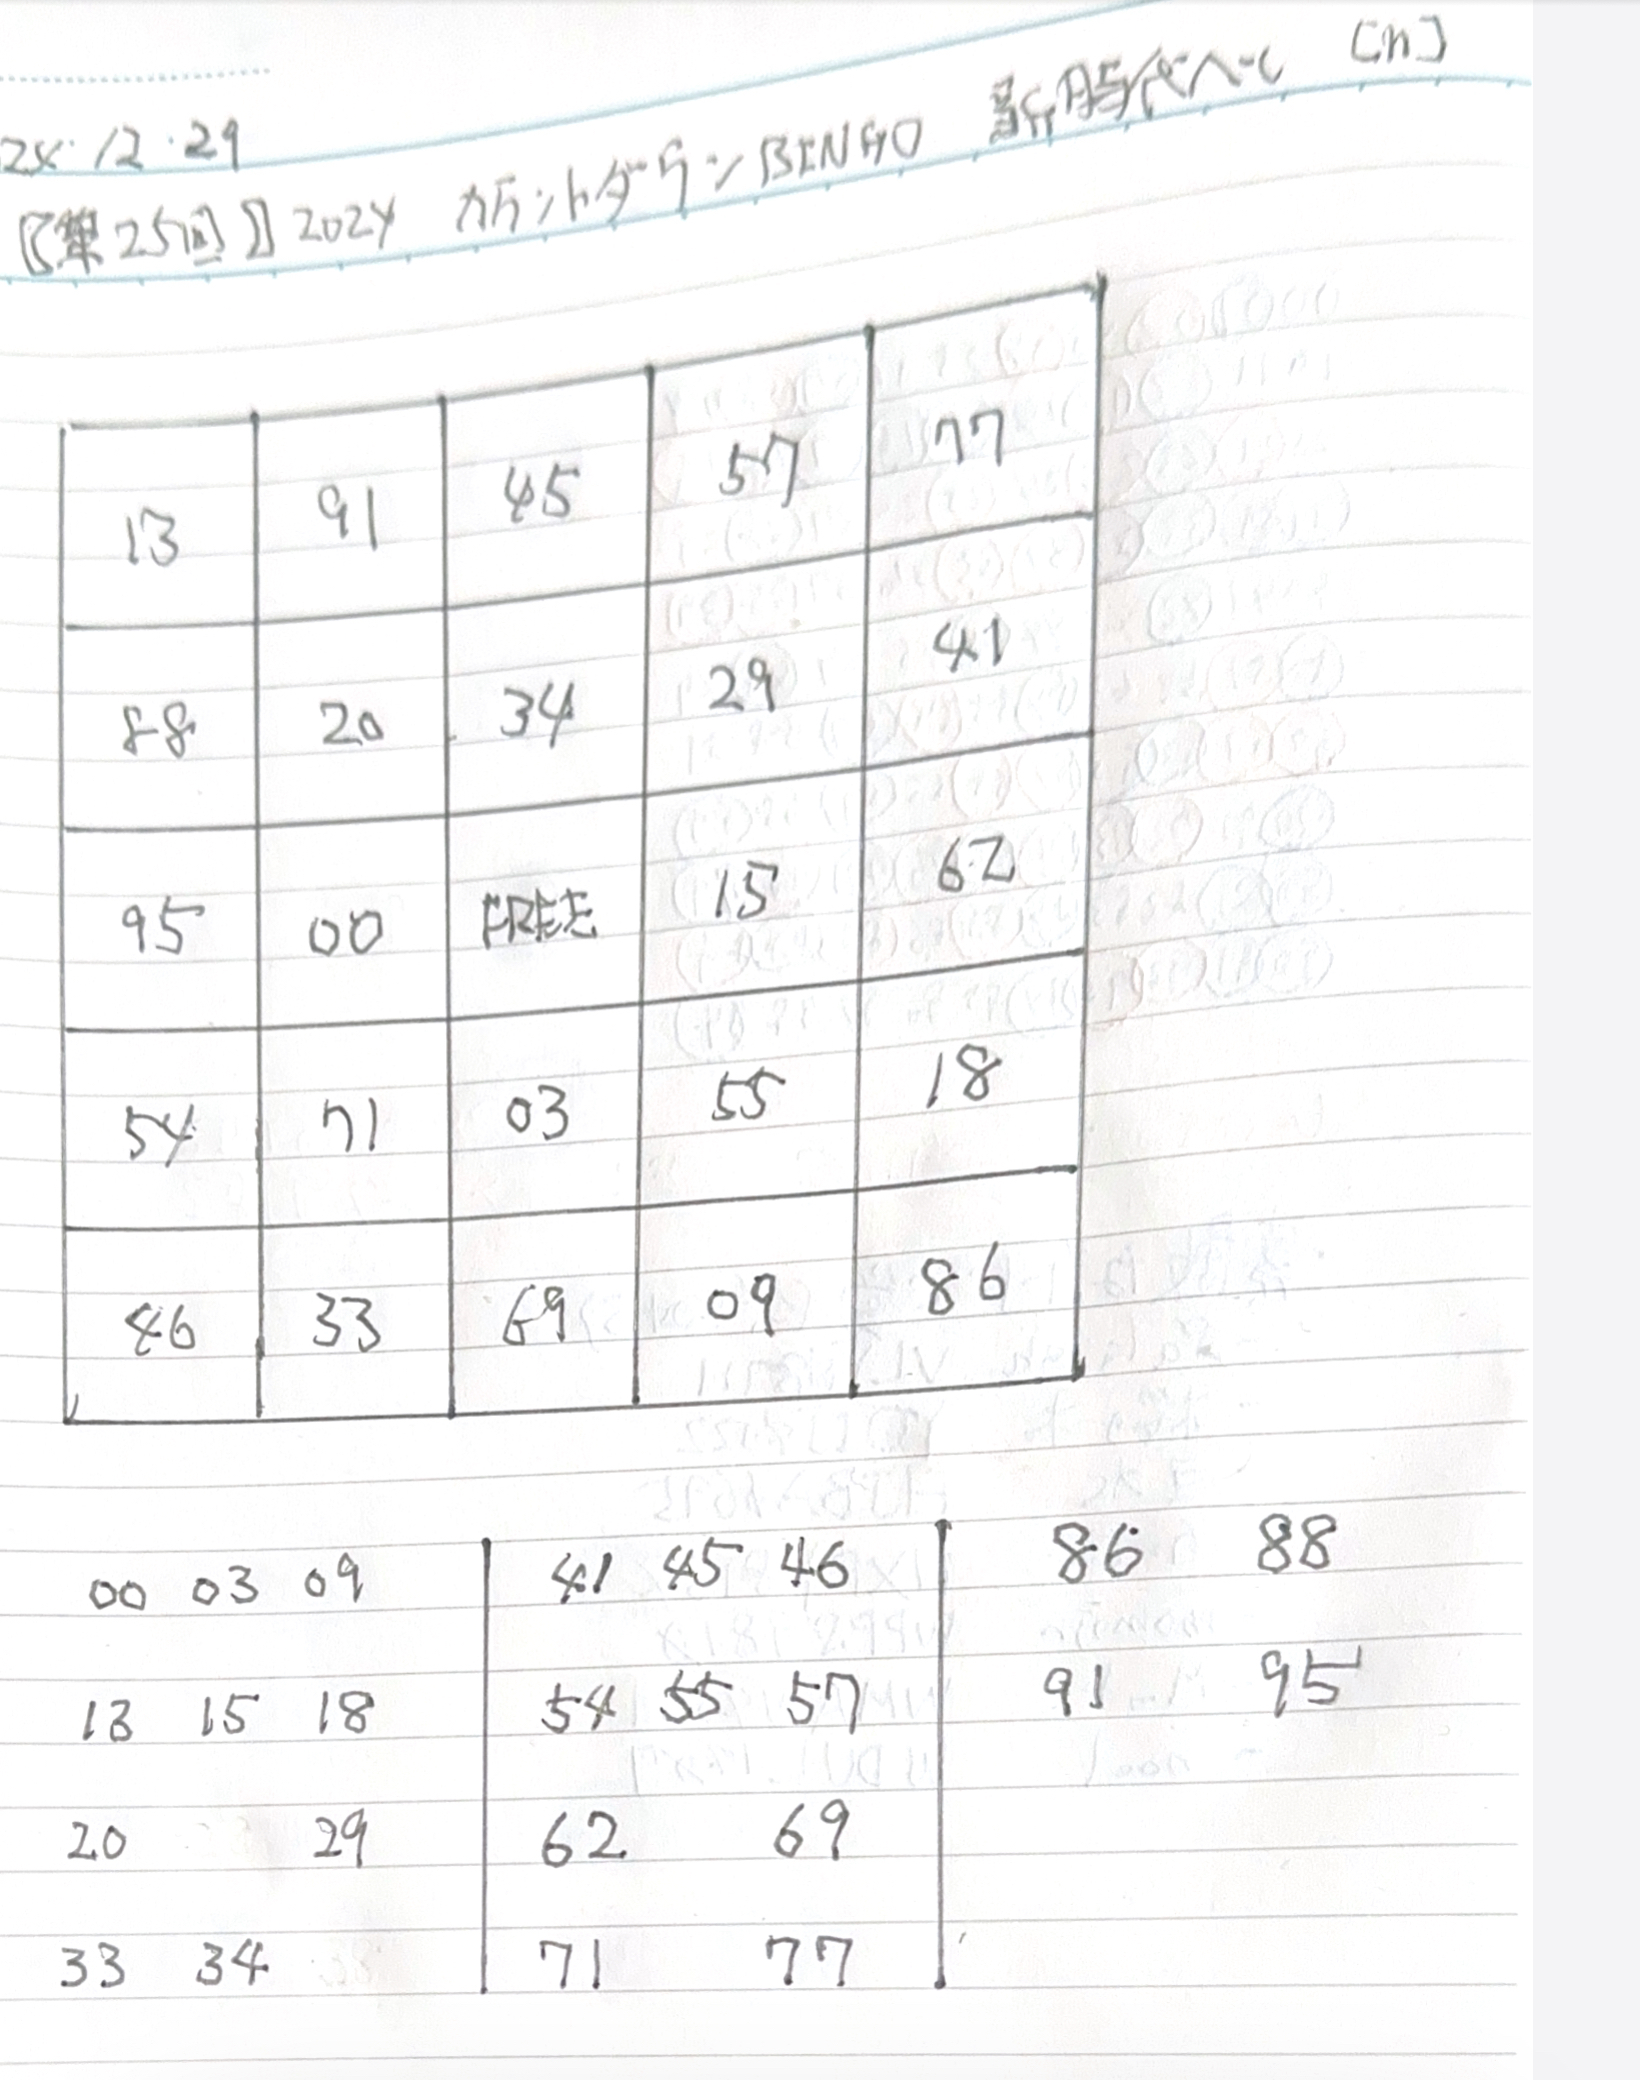 24.12.29
〖第25回〗2024 カウントダウンBINGO 新時代へ [n]
13 91 45 57 77
88 20 34 29 41
95 00 FREE 15 62
54 71 03 55 18
46 33 69 09 86
00 03 09 41 45 46 86 88
13 15 18 54 55 57 91 95
20 29 62 69
33 34 71 77